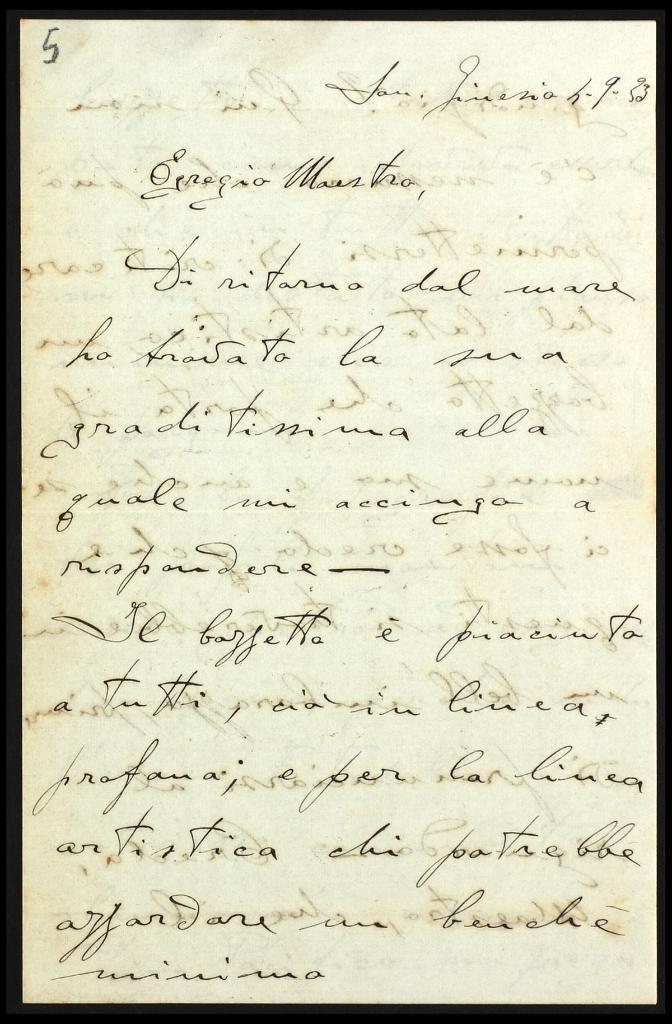 5
San. Ginesio 4-9-33
Egregio Maestro,
Di ritorno dal mare
ho trovato la sua
graditissima alla
quale mi accingo a
rispondere—
Il bozzetto è piaciuto
a tutti, ciò in linea
profana; e per la linea
artistica chi potrebbe
azzardare un benchè
minimo